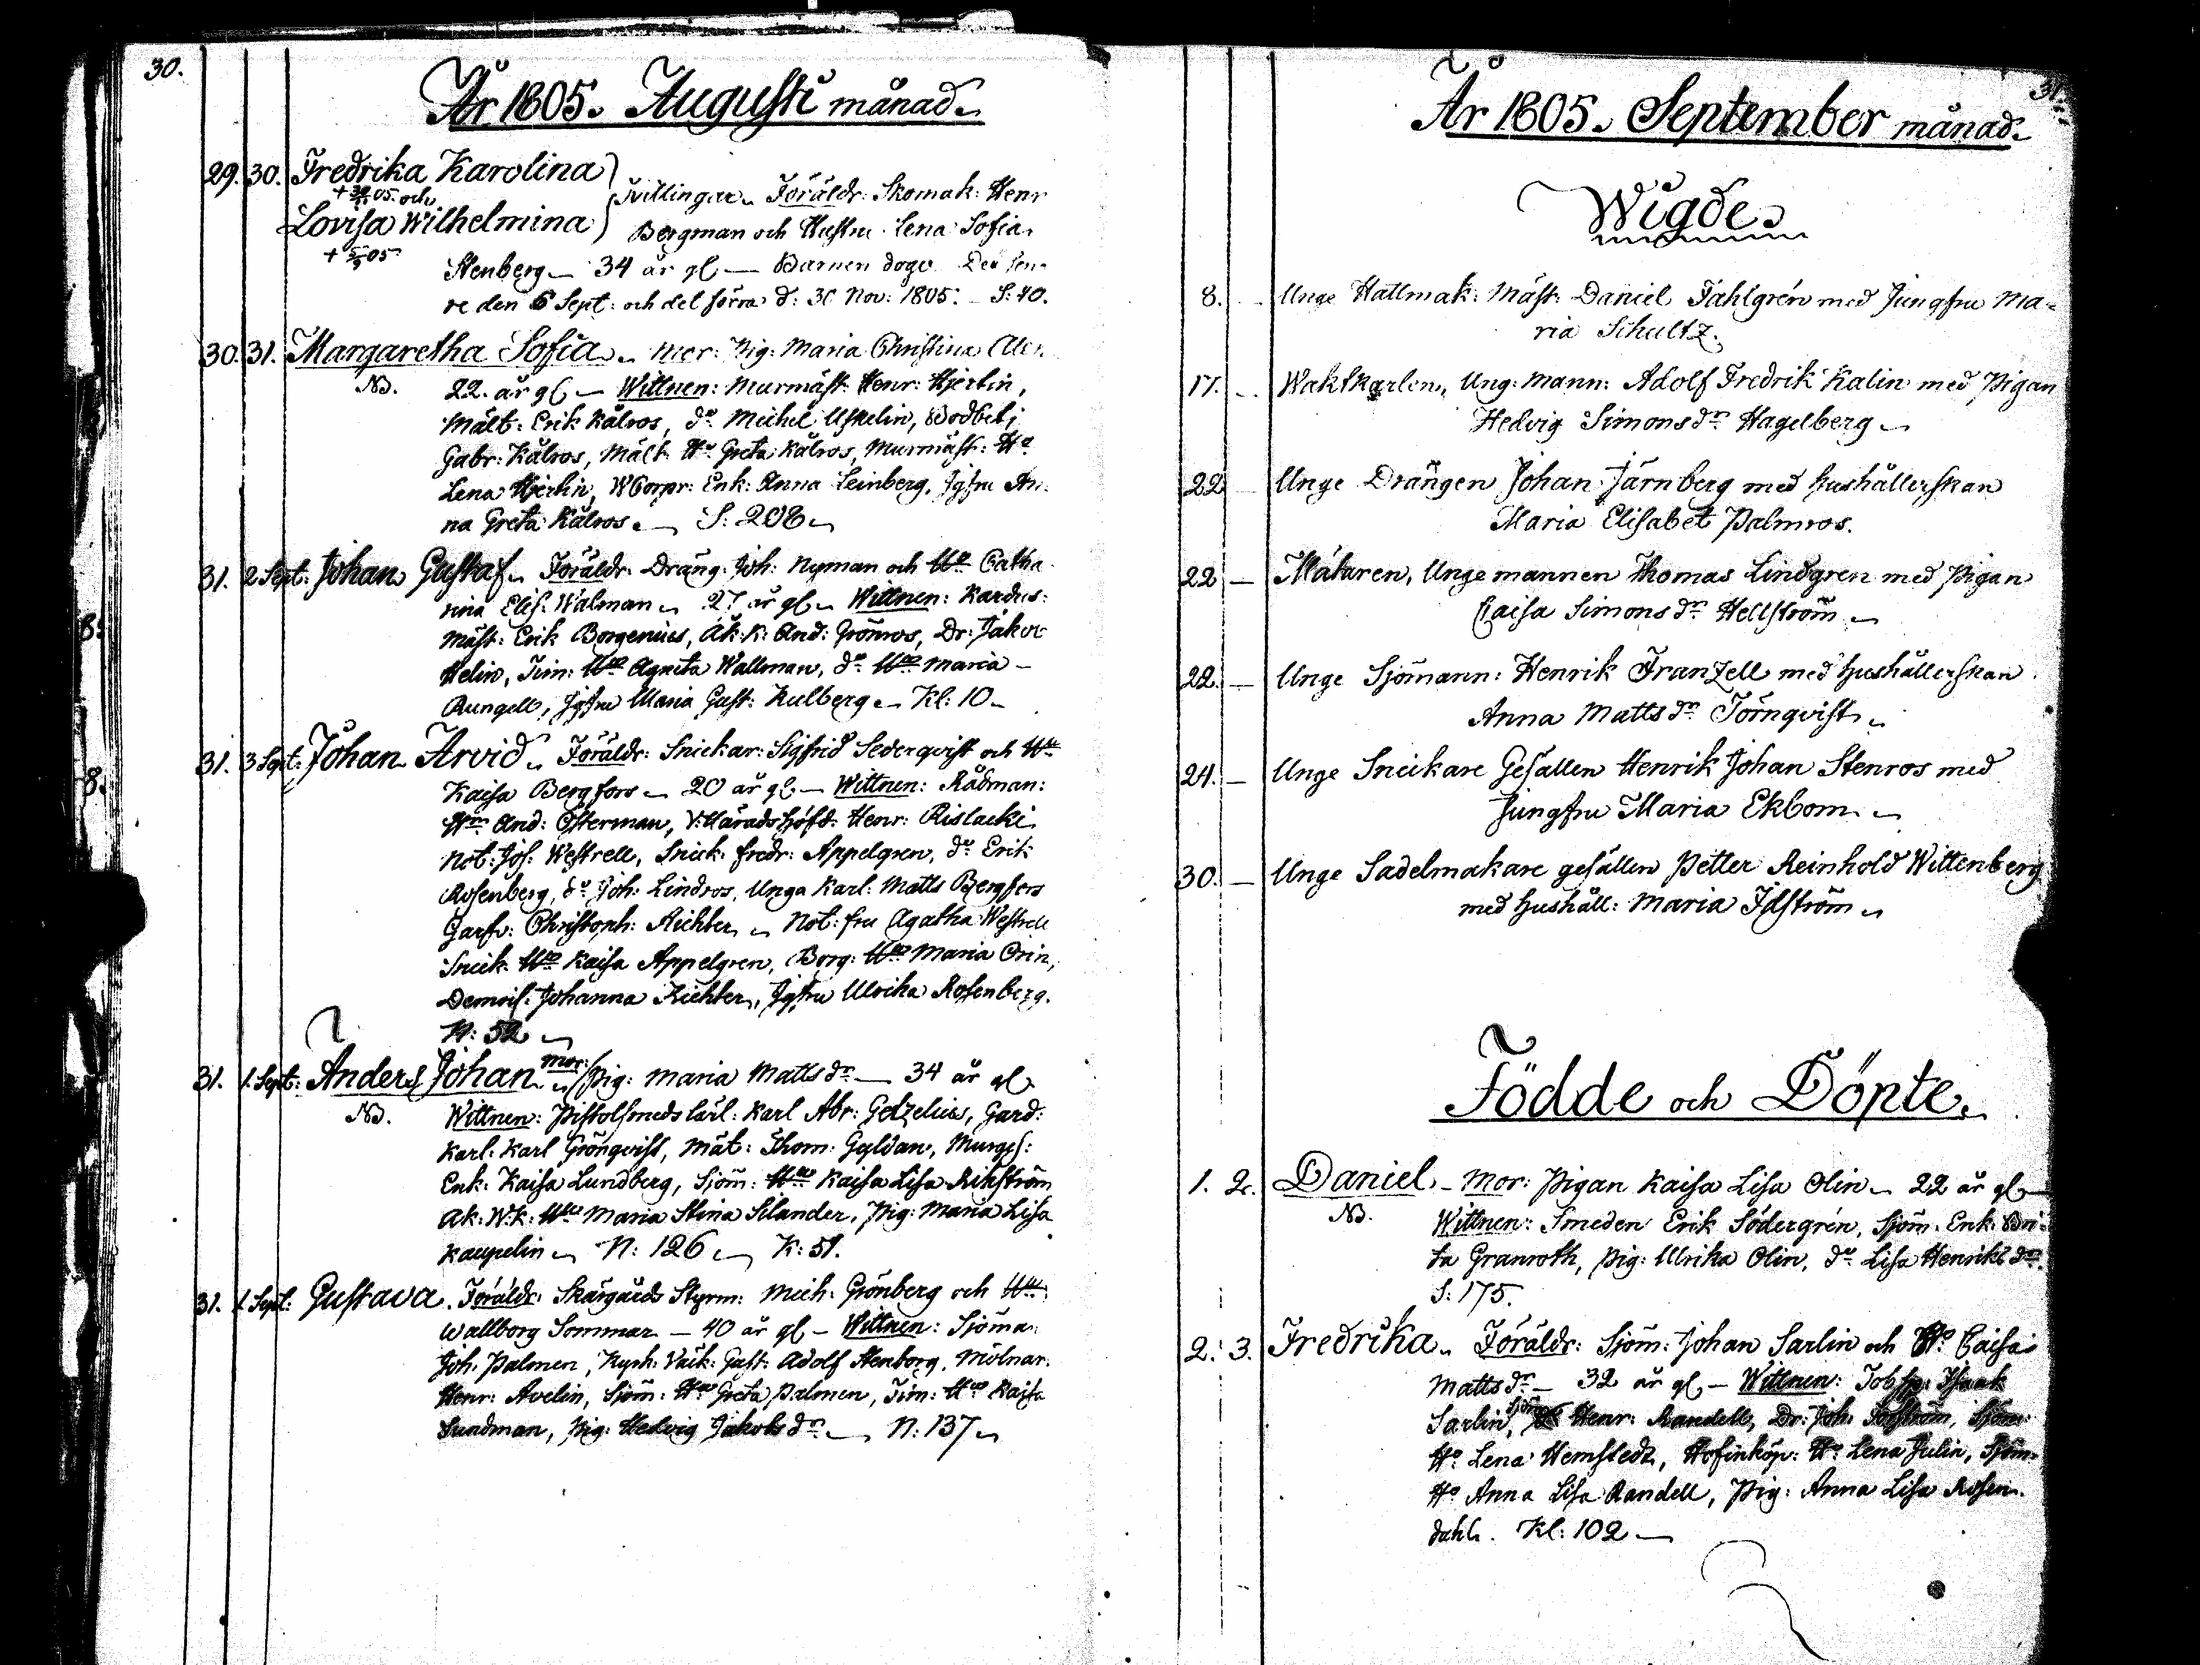 30.
År 1805. Augusti månad.
29. 30. Fredrika Karolina
+ 30/11 05. och Tvillingar. Föräldr: Skomak: Henr
Lovisa Wilhelmina Bergman och Hustru Lena Sofia
+ 5/9 05 Stenberg — 34 år gl — Barnen dogo Det sen-
re den 6 Sept: och det förra d: 30 Nov: 1805. — S: 40.
30. 31. Margaretha Sofia. Mor: Pig: Maria Christina
NB. 22. år gl — Wittnen: Murmäst: Henr: Hjertin,
Mält: Erik Kålros, do Michel Uskelin,
Gabr: Kålros, Mält Ho Greta Kålros, Murmäst: Ho
Lena Hjertin, WCorpr: Enk: Anna Leinberg, Jgfru An-
na Greta Kålros. — S: 208
31. 2 Sept: Johan Gustaf. Föräldr: Dräng: Joh: Nyman och Catha-
rina Elis: Wålman 27 år gl Wittnen: Kardus:
mäst: Erik Borgenius, Åk: K: And: Grönros, Dr: Jakob
Helin, Tim: Agnita Wallman, do Maria
Rungell, Jgfru Maria Gust: Kulberg — Kl: 10
31. 3 Sept: Johan Arvid. Föräldr: Snickar: Sigfrid Sederqvist och
Kaisa Bergfors — 20 år gl. — Wittnen: Rådman:
And: Österman, V: Häradshöfd: Henr: Rislacki
Not: Jos: Westrell, Snick: fredr: Appelgren, do Erik
Rosenberg, do Joh: Lindros, Unga Karl: Matts Bergfors
Garfv: Christoph: Richter Not: fru Agatha Westrell
Snick: Kaisa Appelgren, Borg: Maria Orin,
Demois: Johanna Richter, Jgfru Ulrika Rosenberg.
N: 52
31. 1. Sept: Anders Johan Mor: Pig: Maria Matts dr — 34 år gl
NB. Wittnen: Pistolsmeds lärl: Karl Abr: Getzelius, Gard:
Karl: Karl Grönqvist, Mät: Thom: Gyldan, Murges:
Enk: Kaisa Lundberg, Sjöm: Kaisa Lisa Rikström
Ak: W.k: Maria Stina Silander, Pig: Maria Lisa
Kaupelin N: 126 K: 51.
31. 1 Sept: Gustava. Föräldr: Skärgårds Styrm: Mich: Grönberg och
Wallborg Sommar — 40 år gl — Wittnen: Sjöma:
Joh: Palmen, Kyrk: Vakt: Gust: Adolf Stenborg, Mölnar:
Henr: Avelin, Sjöm: Greta Palmen, Tim: Kaisa
Sundman, Pig: Hedvig Jakobs dr — N: 137
31.
År 1805. September månad.
Wigde.
8. Unge Hattmak: Mäst: Daniel Fahlgrén med Jungfru Ma-
ria Schultz.
17. Waktkarlen, Ung: Mann: Adolf Fredrik Kalin med Pigan
Hedvig Simons dr Hagelberg
22 — Unge Drängen Johan Järnberg med hushållerskan
Maria Elisabet Palmros.
22 — Mätaren, Unge mannen Thomas Lindgren med Pigan
Caisa Simons dr Hellström
22. — Unge Sjömann: Henrik Franzell med hushållerskan
Anna Matts dr Törnqvist
24. — Unge Snickare Gesällen Henrik Johan Stenros med
Jungfru Maria Ekbom
30. — Unge Sadelmakare gesällen Petter Reinhold Wittenberg
med hushåll: Maria Idström
Födde och Döpte.
1. 2. Daniel. — Mor: Pigan Kaisa Lisa Olin 22 år gl —
NB. Wittnen: Smeden Erik Södergrén, Sjöm: Enk: Bri-
ta Granroth, Pig: Ulrika Olin, do Lisa Henriks dr
S: 175.
2. 3. Fredrika. Föräldr: Sjöm: Johan Sarlin och Ho Caisa
Matts dr — 32 år gl — Wittnen: Isaak
Sarlin, Sjöm Henr: Randell, Dr: Joh: Sjöm:
Ho Lena Hemstedt, Hofinköp: Ho Lena Julin, Sjöm:
Ho Anna Lisa Randell, Pig: Anna Lisa Rosen-
dahl. Kl: 102 —
8.
8.